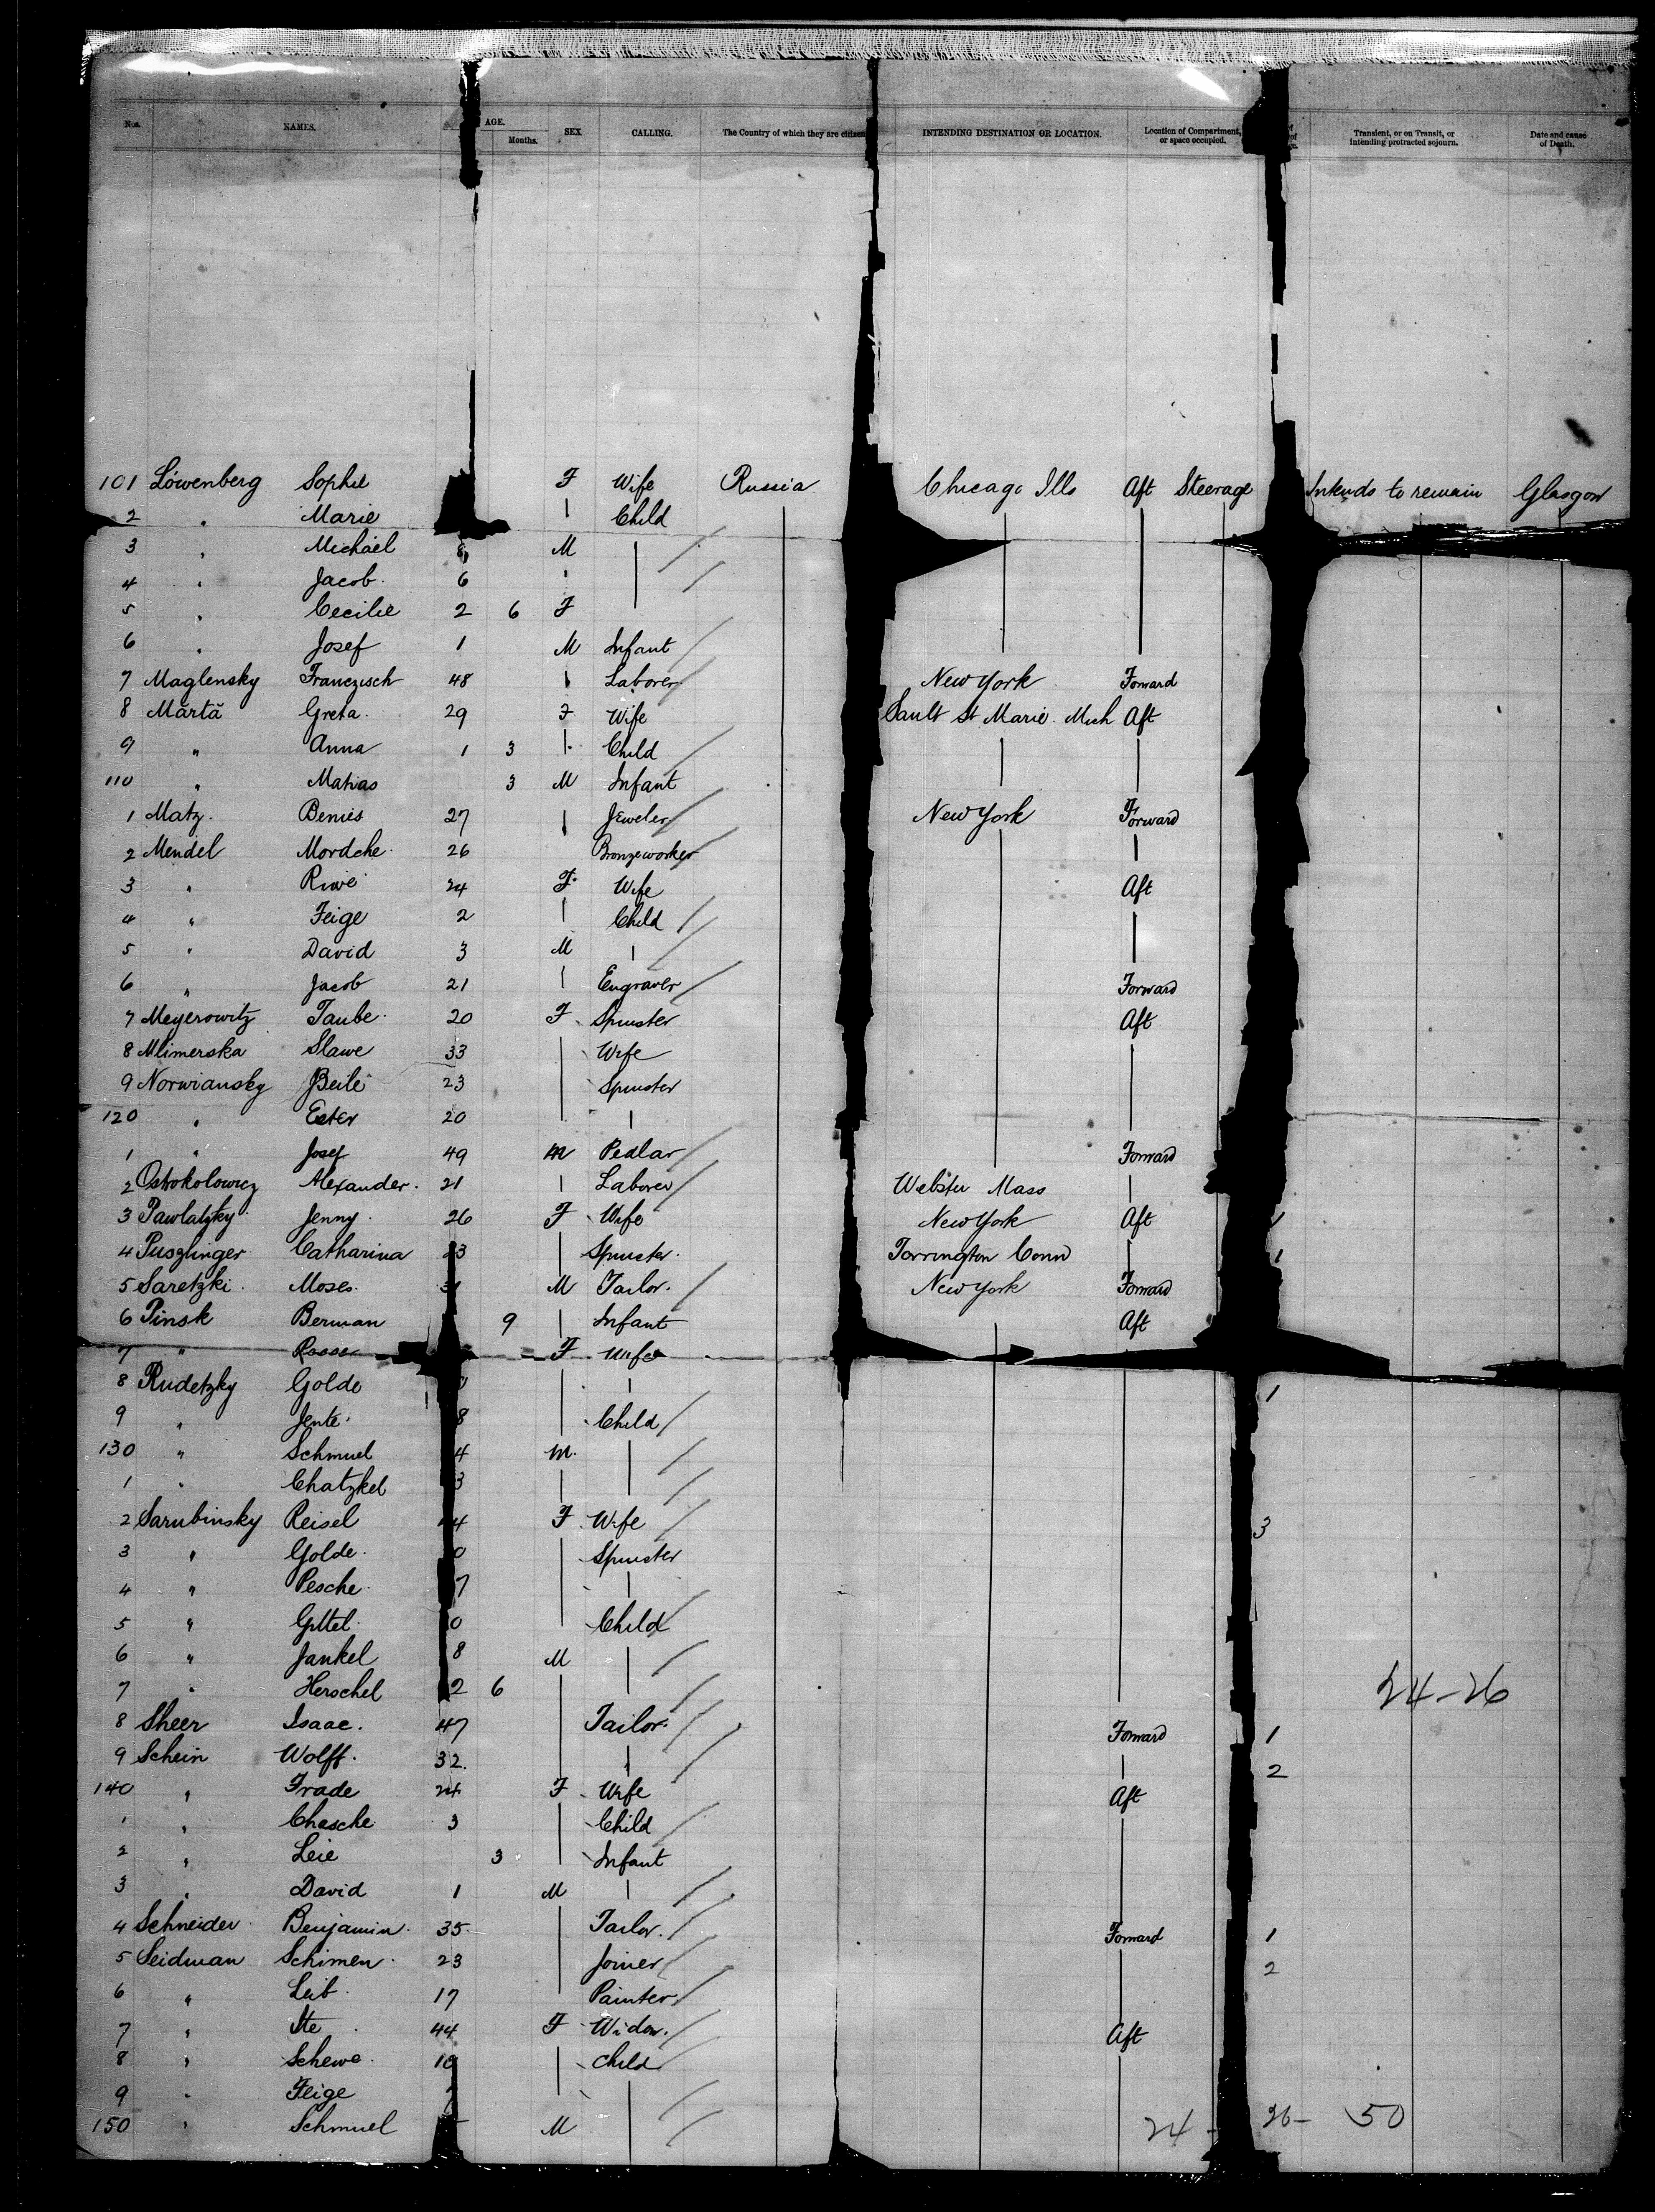 Nos. NAMES. AGE. Months. SEX CALLING. The Country of which they are citizen INTENDING DESTINATION OR LOCATION. Location of Compartment, or space occupied. Transient, or on Transit, or intending protracted sojourn. Date and cause of Death.
101 Löwenberg Sophie F Wife Russia Chicago Ills Aft Steerage Intends to remain Glasgow
2 " Marie Child
3 " Michael 8 M
4 " Jacob 6
5 " Cecilie 2 6 F
6 " Josef 1 M Infant
7 Maglensky Franczisch 48 Laborer New York Forward
8 Märtä Greta 29 F Wife Sault St Marie Mich Aft
9 " Anna 1 3 Child
110 " Matias 3 M Infant
1 Matz Benies 27 Jeweler New York Forward
2 Mendel Mordche 26 Bronzeworker
3 " Riwe 24 F Wife Aft
4 " Feige 2 Child
5 " David 3 M
6 " Jacob 21 Engraver Forward
7 Meyerowitz Taube 20 F Spinster Aft
8 Mlimerska Slawe 33 Wife
9 Norwiansky Beile 23 Spinster
120 " Ester 20
1 " Josef 49 M Pedlar Forward
2 Ostrokolowicz Alexander 21 Laborer Webster Mass
3 Pawlatzky Jenny 26 F Wife New York Aft 1
4 Puszlinger Catharina 23 Spinster Torrington Conn 1
5 Saretzki Moses 31 M Tailor New York Forward
6 Pinsk Berman 9 Infant Aft
7 " F Wife
8 Rudetzky Golde 1
9 " Jente 8 Child
130 " Schmuel 4 M
1 " Chatzkel 3
2 Sarubinsky Reisel 44 F Wife 3
3 " Golde 0 Spinster
4 " Pesche 7
5 " Gittel 0 Child
6 " Jankel 8 M
7 " Herschel 2 6 24-26
8 Sheer Isaac 47 Tailor Forward 1
9 Schein Wolff 32 2
140 " Frade 24 F Wife Aft
1 " Chasche 3 Child
2 " Leie 3 Infant
3 " David 1 M
4 Schneider Benjamin 35 Tailor Forward 1
5 Seidman Schimen 23 Joiner 2
6 " Leib 17 Painter
7 " Ite 44 F Widow Aft
8 " Schewe 10 Child
9 " Feige 7
150 " Schmuel M 24 - 26 - 50